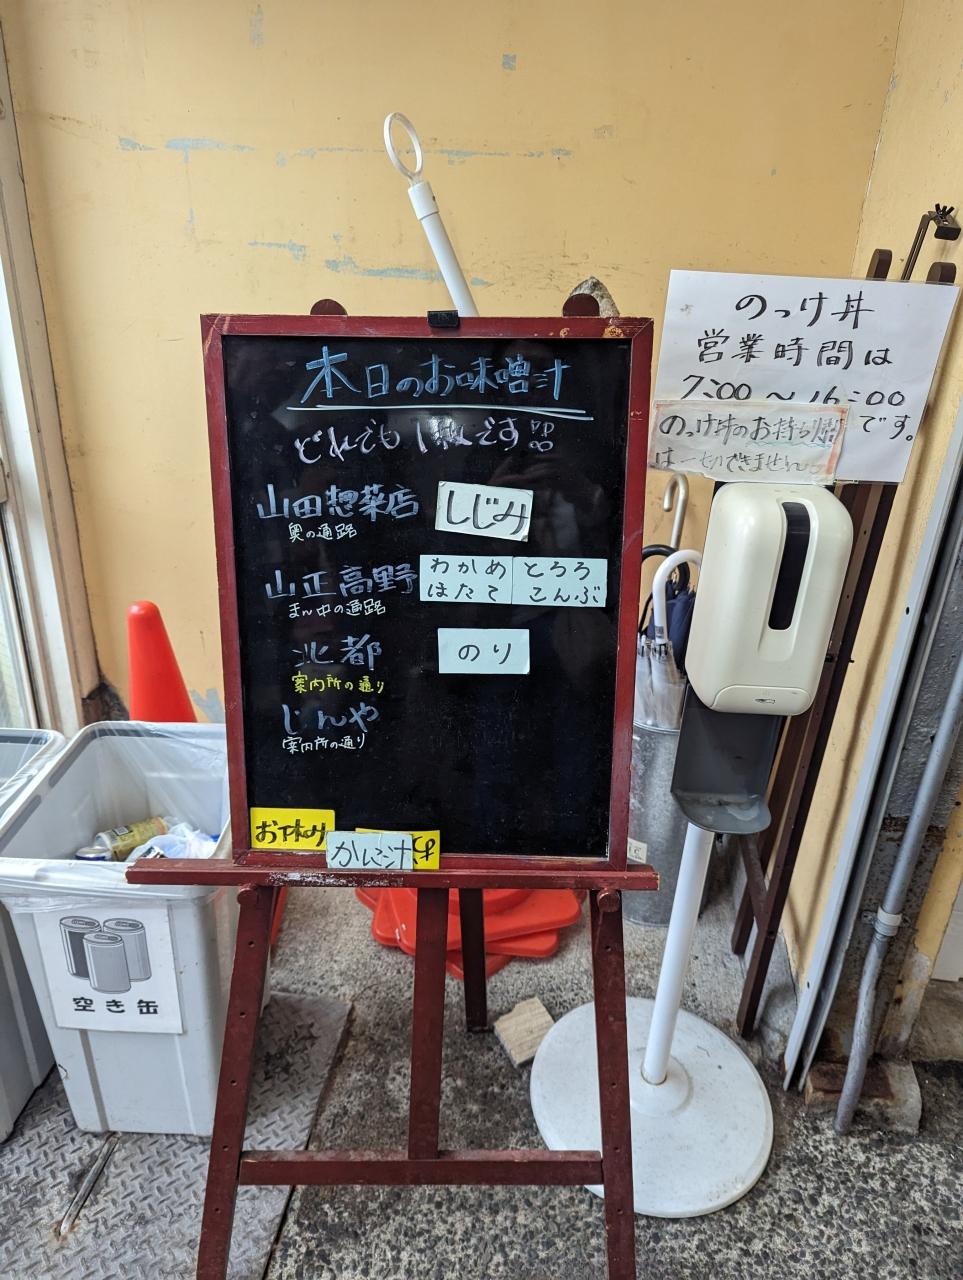 本日のお味噌汁
どれでも1枚です!!
山田惣菜店
しじみ
奥の通路
山正高野
わかめ
ほたて
とろろ
こんぶ
まん中の通路
北都
のり
案内所の通り
じんや
案内所の通り
お休み
かに汁
のっけ丼
営業時間は
7:00〜16:00
です。
のっけ丼のお持ち帰り
は一切できません
空き缶